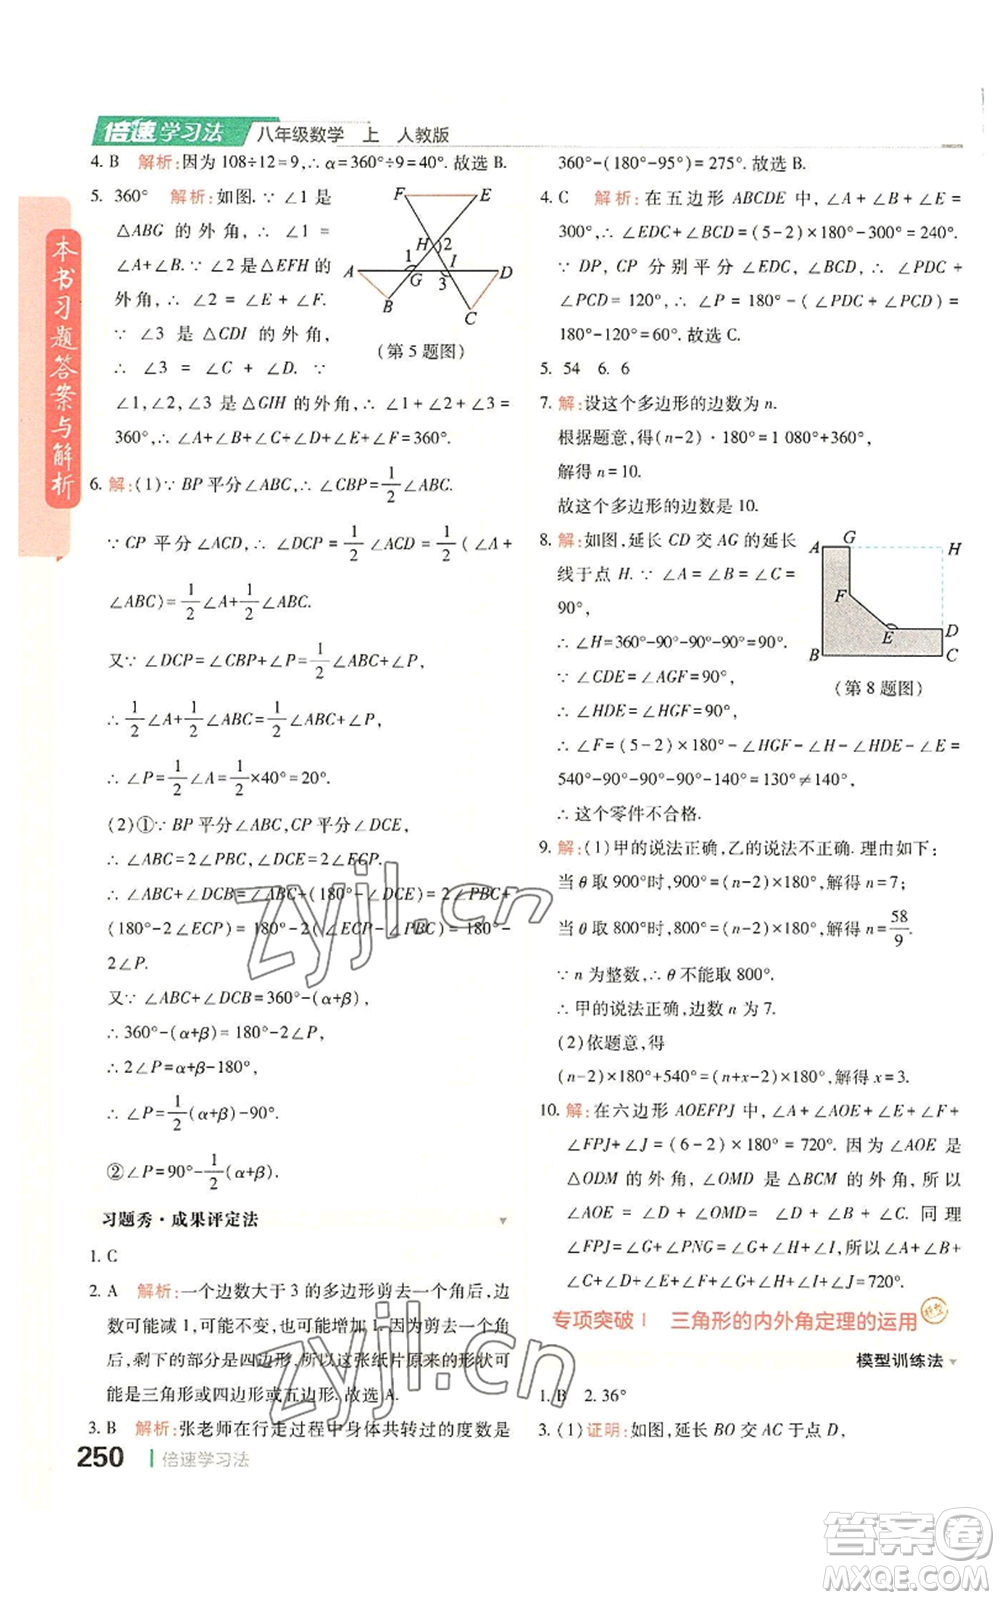 倍速学习法 八年级数学 上 人教版
本书习题答案与解析
4. B 解析:因为 108÷12=9,∴ α=360°÷9=40°.故选 B.
5. 360° 解析:如图.∵ ∠1 是
△ABG 的 外 角, ∴ ∠1 =
∠A+∠B. ∵ ∠2 是△EFH 的
外角, ∴ ∠2 = ∠E + ∠F.
∵ ∠3 是 △CDI 的 外 角,
∴ ∠3 = ∠C + ∠D. ∵
∠1,∠2,∠3 是△GIH 的外角,∴ ∠1+∠2+∠3=
360°,∴ ∠A+∠B+∠C+∠D+∠E+∠F=360°.
F E H 2 1 A G I D 3 B C
(第 5 题图)
6. 解:(1)∵ BP 平分∠ABC,∴ ∠CBP=1/2∠ABC.
∵ CP 平分∠ACD,∴ ∠DCP=1/2∠ACD=1/2(∠A+
∠ABC)=1/2∠A+1/2∠ABC.
又∵ ∠DCP=∠CBP+∠P=1/2∠ABC+∠P,
∴ 1/2∠A+1/2∠ABC=1/2∠ABC+∠P,
∴ ∠P=1/2∠A=1/2×40°=20°.
(2)①∵ BP 平分∠ABC,CP 平分∠DCE,
∴ ∠ABC=2∠PBC,∠DCE=2∠PCE.
∴ ∠ABC+∠DCB=∠ABC+(180°-∠DCE)=2∠PBC+
(180°-2∠ECP)=180°-2(∠ECP-∠PBC)=180°-
2∠P.
又∵ ∠ABC+∠DCB=360°-(α+β),
∴ 360°-(α+β)=180°-2∠P,
∴ 2∠P=α+β-180°,
∴ ∠P=1/2(α+β)-90°.
②∠P=90°-1/2(α+β).
习题秀·成果评定法
1. C
2. A 解析:一个边数大于 3 的多边形剪去一个角后,边
数可能减 1,可能不变,也可能加 1.因为剪去一个角
后,剩下的部分是四边形,所以这张纸片原来的形状可
能是三角形或四边形或五边形.故选 A.
3. B 解析:张老师在行走过程中身体共转过的度数是
250 倍速学习法
360°-(180°-95°)=275°.故选 B.
4. C 解析:在五边形 ABCDE 中,∠A+∠B+∠E=
300°,∴ ∠EDC+∠BCD=(5-2)×180°-300°=240°.
∵ DP, CP 分别平分∠EDC, ∠BCD, ∴ ∠PDC +
∠PCD = 120°, ∴ ∠P = 180° - (∠PDC + ∠PCD) =
180°-120°=60°.故选 C.
5. 54 6. 6
7. 解:设这个多边形的边数为 n.
根据题意,得(n-2)·180°=1 080°+360°,
解得 n=10.
故这个多边形的边数是 10.
8. 解:如图,延长 CD 交 AG 的延长
线于点 H.∵ ∠A=∠B=∠C=
90°,
∴ ∠H=360°-90°-90°-90°=90°.
∵ ∠CDE=∠AGF=90°,
∴ ∠HDE=∠HGF=90°,
∴ ∠F=(5-2)×180°-∠HGF-∠H-∠HDE-∠E=
540°-90°-90°-90°-140°=130°≠140°,
∴ 这个零件不合格.
A G H F E D B C
(第 8 题图)
9. 解:(1)甲的说法正确,乙的说法不正确.理由如下:
当 θ 取 900°时,900°=(n-2)×180°,解得 n=7;
当 θ 取 800°时,800°=(n-2)×180°,解得 n=58/9.
∵ n 为整数,∴ θ 不能取 800°.
∴ 甲的说法正确,边数 n 为 7.
(2)依题意,得
(n-2)×180°+540°=(n+x-2)×180°,解得 x=3.
10. 解:在六边形 AOEFPJ 中,∠A+∠AOE+∠E+∠F+
∠FPJ+∠J=(6-2)×180°=720°. 因为∠AOE 是
△ODM 的外角,∠OMD 是△BCM 的外角,所以
∠AOE = ∠D + ∠OMD = ∠D + ∠B + ∠C. 同理
∠FPJ=∠G+∠PNG=∠G+∠H+∠I,所以∠A+
∠B+∠C+∠D+∠E+∠F+∠G+∠H+∠I+∠J=720°.
专项突破 1 三角形的内外角定理的运用
模型训练法
1. B 2. 36°
3. (1)证明:如图,延长 BO 交 AC 于点 D,
zyjl.cn
zyjl.cn
答案圈
MXQE.COM